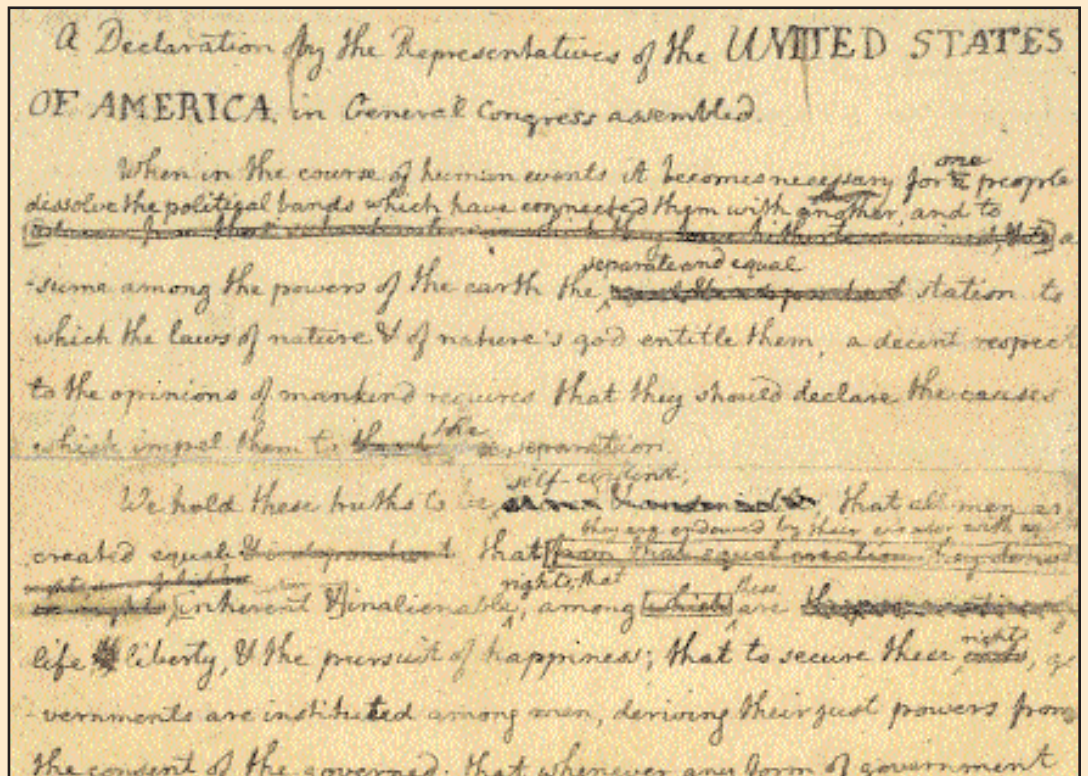 A Declaration by the Representatives of the UNITED STATES
OF AMERICA, in General Congress assembled.
When in the course of human events it becomes necessary for one people
dissolve the political bands which have connected them with another, and to
separate and equal
-sume among the powers of the earth the station to
which the laws of nature & of nature's god entitle them, a decent respect
to the opinions of mankind requires that they should declare the causes
which impel them to the separation.
self-evident;
We hold these truths to be that all men
they are endowed by their creator with
created equal & independant that from that equal creation they
rights; that these
inherent & inalienable, among which are
rights
life liberty, & the pursuit of happiness; that to secure these ends,
-vernments are instituted among men, deriving their just powers from
the consent of the governed; that whenever any form of government